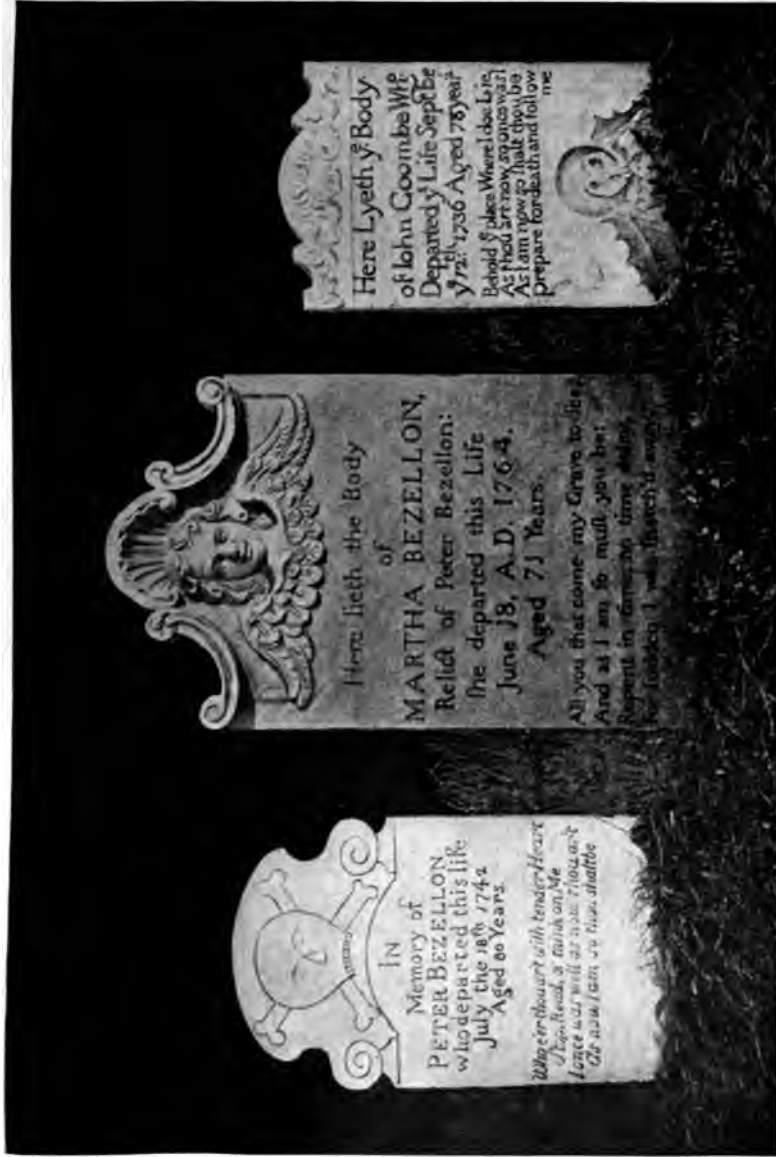 IN
Memory of
PETER BEZELLON
who departed this life
July the 18th 1742
Aged 80 Years.
Whoe'er thou art with tender Heart
Stop, Read, & think on Me
I once was well as now Thou art
As now I am so thou shalt be
Here lieth the Body
of
MARTHA BEZELLON,
Relict of Peter Bezellon:
she departed this Life
June 18, A.D. 1764,
Aged 71 Years.
All you that come my Grave to see,
And as I am so must you be:
Repent in time, no time delay,
For sudden I was snatch'd away.
Here Lyeth yᵉ Body
of Iohn Coombe Who
Departed yˢ Life Septbe
yᵉ 12th: 1736 Aged 78 year
Behold yᵉ place Where I doe Lie,
As thou art now so once was I
As I am now so shalt thou be
prepare for death and follow
me